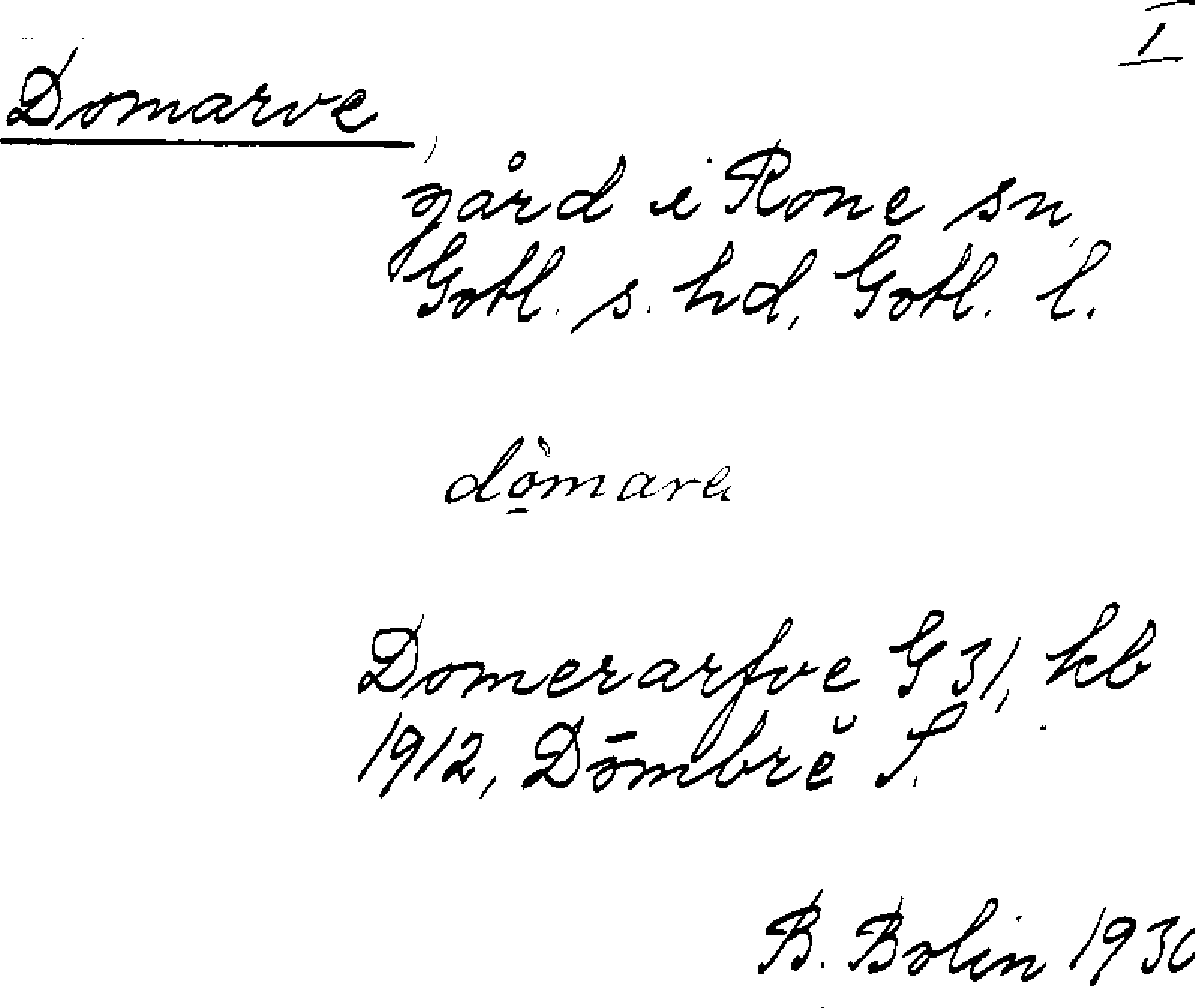 I
Domarve,
gård i Rone sn,
Gotl. s. hd, Gotl. l.
dömare
Domerarfve G 31, kb
1912, Dōmbrĕ S.
B. Bolin 1930